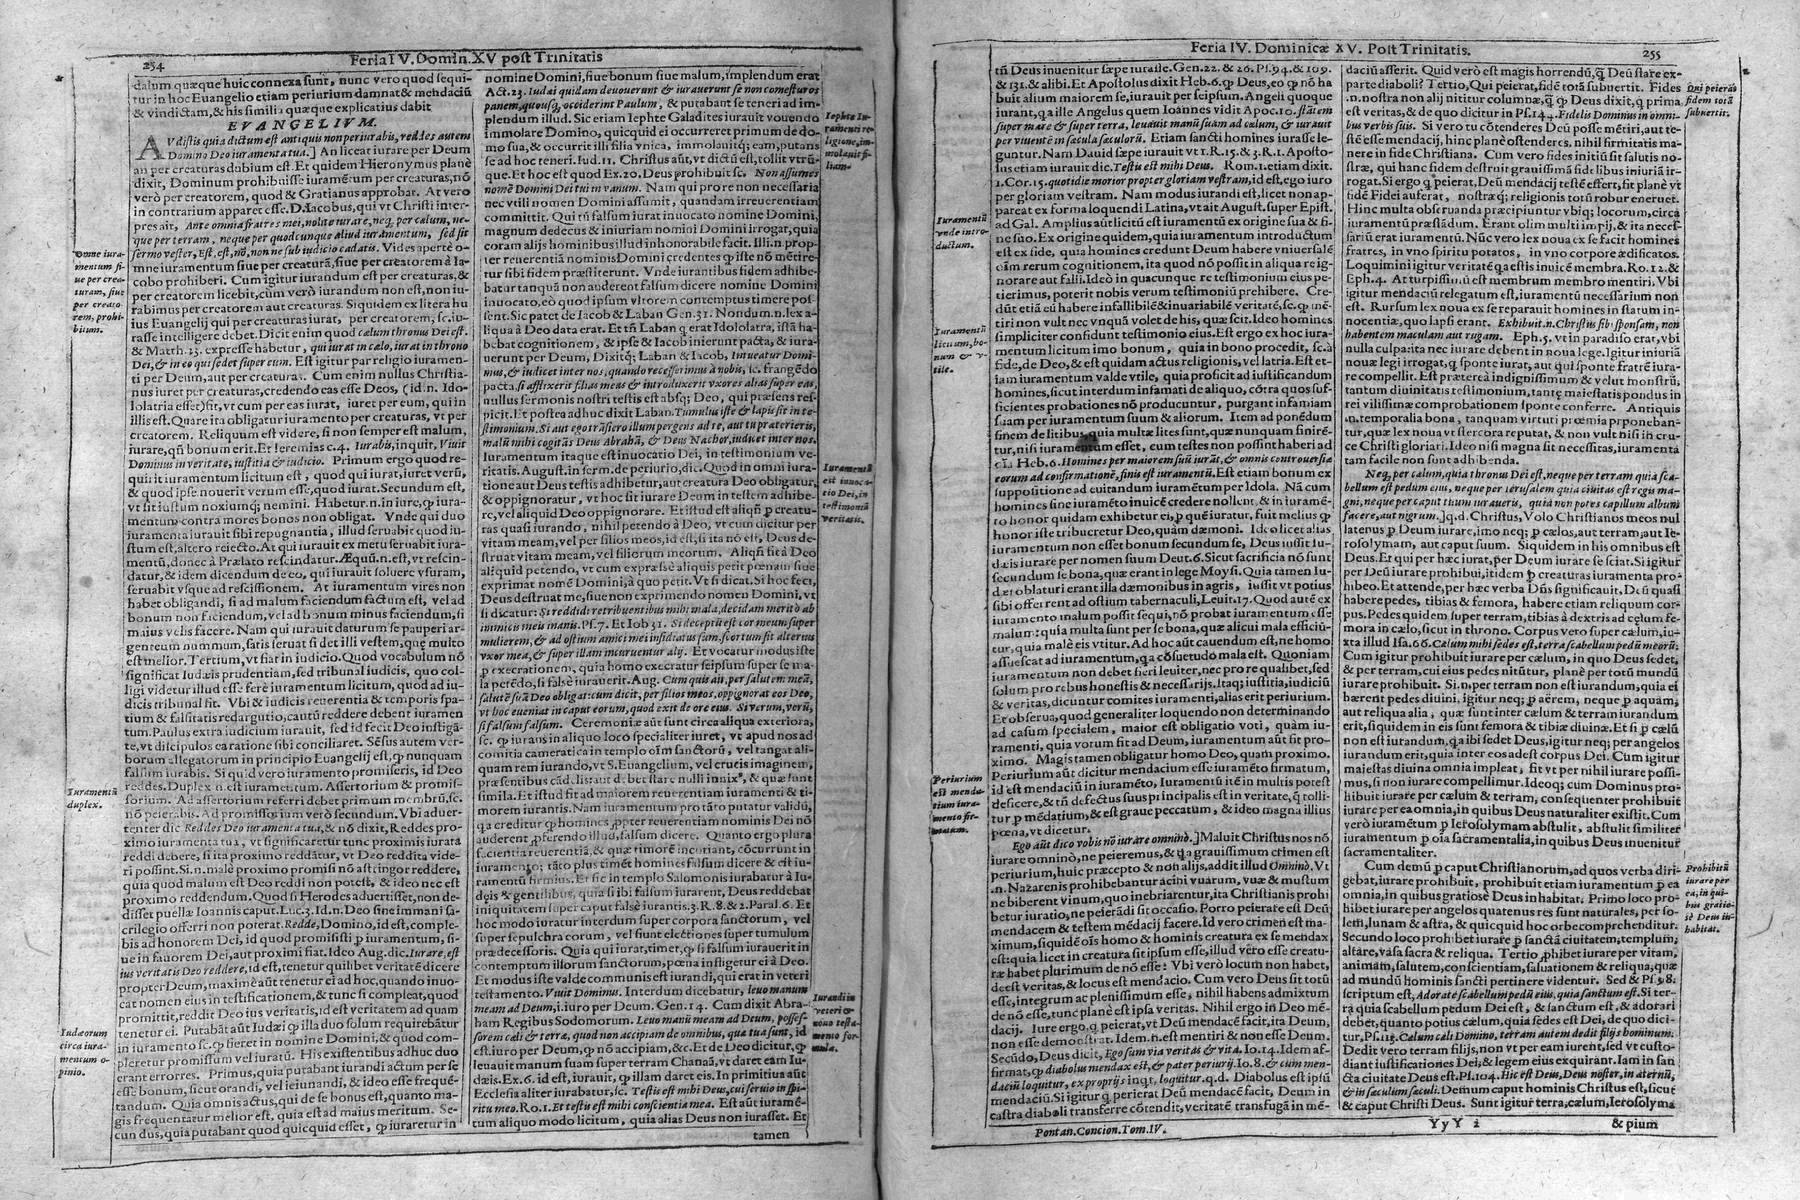 254
Feria IV. Domin. XV post Trinitatis
dalum quæque huic connexa sunt, nunc vero quod sequi-
tur in hoc Euangelio etiam periurium damnat & mendaciū
& vindictam, & his similia quæque explicatius dabit
EVANGELIVM.
AVdistis quia dictum est antiquis non periurabis, reddes autem
Domino Deo iuramenta tua.] An liceat iurare per Deum
an per creaturas dubium est. Et quidem Hieronymus planè
dixit, Dominum prohibuisse iuramētum per creaturas, nō
verò per creatorem, quod & Gratianus approbat. At vero
in contrarium apparet esse. D. Iacobus, qui vt Christi inter-
pres ait, Ante omnia fratres mei, nolite iurare, neq, per cælum, ne-
que per terram, neque per quodcunque aliud iuramentum, sed sit
sermo vester, Est, est, nō, non ne sub iudicio cadatis. Vides apertè o-
mne iuramentum siue per creaturā, siue per creatorem à Ia-
cobo prohiberi. Cum igitur iurandum est per creaturas, &
per creatorem licebit, cùm verò iurandum non est, non iu-
rabimus per creatorem aut creaturas. Siquidem ex litera hu
ius Euangelij qui per creaturas iurat, per creatorem, sc. iu-
rasse intelligere debet. Dicit enim quod cælum thronus Dei est.
& Matth. 23. expresse habetur, qui iurat in cælo, iurat in throno
Dei, & in eo qui sedet super eum. Est igitur par religio iuramen-
ti per Deum, aut per creaturas. Cum enim nullus Christia-
nus iuret per creaturas, credendo eas esse Deos, (id. n. Ido-
lolatria esset) sit, vt cum per eas iurat, iuret per eum, qui in
illis est. Quare ita obligatur iuramento per creaturas, vt per
creatorem. Reliquum est videre, si non semper est malum,
iurare, qñ bonum erit. Et Ieremias c. 4. Iurabis, inquit, Viuit
Dominus in veritate, iustitia & iudicio. Primum ergo quod re-
quirit iuramentum licitum est, quod qui iurat, iuret verū,
& quod ipse nouerit verum esse, quod iurat. Secundum est,
vt sit iustum noxiumq; nemini. Habetur. n. in iure, ꝙ iura-
mentum contra mores bonos non obligat. Vnde qui duo
iuramenta iurauit sibi repugnantia, illud seruabit quod iu-
stum est, altero reiecto. At qui iurauit ex metu seruabit iura-
mentū, donec à Prælato rescindatur. Æquū. n. est, vt rescin-
datur, & idem dicendum de eo, qui iurauit soluere vsuram,
seruabit vsque ad rescissionem. At iuramentum vires non
habet obligandi, si ad malum faciendum factum est, vel ad
bonum non faciendum, vel ad bonum minus faciendum, si
maius velis facere. Nam qui iurauit daturum se pauperi ar-
genteum nummum, satis seruat si det illi vestem, quę multo
est melior. Tertium, vt fiat in iudicio. Quod vocabulum nō
significat Iudæis prudentiam, sed tribunal iudicis, quo col-
ligi videtur illud esse ferè iuramentum licitum, quod ad iu-
dicis tribunal fit. Vbi & iudicis reuerentia & temporis spa-
tium & falsitatis redargutio, cautū reddere debent iuramen
tum. Paulus extra iudicium iurauit, sed id fecit Deo instigā-
te, vt discipulos ea ratione sibi conciliaret. Sēsus autem ver-
borum allegatorum in principio Euangelij est, ꝙ nunquam
falsum iurabis. Si quid vero iuramento promiseris, id Deo
reddes. Duplex n. est iuramentum. Assertorium & promis-
sorium. Ad assertorium referri debet primum membrū, sc.
nō peierabis. Ad promissorium verò secundum. Vbi aduer-
tenter dic Reddes Deo iuramenta tua, & nō dixit, Reddes pro-
ximo iuramenta tua, vt significaretur tunc proximis iurata
reddi debere, si ita proximo reddātur, vt Deo reddita vide-
ri possint. Si. n. malè proximo promisi nō astringor reddere,
quia quod malum est Deo reddi non potest, & ideo nec est
proximo reddendum. Quod si Herodes aduertisset, non de-
disset puellæ Ioannis caput. Luc. 3. Id. n. Deo sine immani sa-
crilegio offerri non poterat. Redde, Domino, id est, comple-
bis ad honorem Dei, id quod promisisti ꝑ iuramentum, si-
ue in fauorem Dei, aut proximi fiat. Ideo Aug. dic. Iurare, est
ius veritatis Deo reddere, id est, tenetur quilibet veritatē dicere
propter Deum, maximè aūt tenetur ei ad hoc, quando inuo-
cat nomen eius in testificationem, & tunc si compleat, quod
promittit, reddit Deo ius veritatis, id est veritatem ad quam
tenetur ei. Putabāt aūt Iudæi ꝙ illa duo solum requirebātur
in iuramento sc. ꝙ fieret in nomine Domini, & quod com-
pleretur promissum vel iuratū. His existentibus adhuc duo
erant errores. Primus, quia putabant iurandi actum per se
esse bonum, sicut orandi, vel ieiunandi, & ideo esse frequē-
tandum. Quia omnis actus, qui de se bonus est, quanto ma-
gis frequentatur melior est, quia est ad maius meritum. Se-
cundus, quia putabant quod quicquid esset, ꝙ iuraretur in
Omne iura-
mentum si-
ue per crea-
turam, siue
per creato-
rem, prohi-
bitum.
Iuramentū
duplex.
Iudæorum
circa iura-
mentum o-
pinio.
nomine Domini, siue bonum siue malum, implendum erat
Act. 23. Iudæi quidam deuouerunt & iurauerunt se non comesturos
panem, quousq, occiderint Paulum, & putabant se teneri ad im-
plendum illud. Sic etiam Iephte Galadites iurauit vouendo
immolare Domino, quicquid ei occurreret primum de do-
mo sua, & occurrit illi filia vnica, immolauitq; eam, putans
se ad hoc teneri. Iud. 11. Christus aūt, vt dictū est, tollit vtrū-
que. Et hoc est quod Ex. 20. Deus prohibuit sc. Non assumes
nomē Domini Dei tui in vanum. Nam qui pro re non necessaria
nec vtili nomen Domini assumit, quandam irreuerentiam
committit. Qui tū falsum iurat inuocato nomine Domini,
magnum dedecus & iniuriam nomini Domini irrogat, quia
coram alijs hominibus illud inhonorabile facit. Illi. n. prop-
ter reuerentiā nominis Domini credentes ꝙ iste nō mētire-
tur sibi fidem præstiterunt. Vnde iurantibus fidem adhibe-
batur tanquā non auderent falsum dicere nomine Domini
inuocato, eò quod ipsum vltorem contemptus timere pos-
sent. Sic patet de Iacob & Laban Gen. 31. Nondum. n. lex a-
liqua à Deo data erat. Et tñ Laban q erat Idololatra, istā ha-
bebat cognitionem, & ipse & Iacob inierunt pacta, & iura-
uerunt per Deum, Dixitq; Laban & Iacob, Intueatur Domi-
nus, & iudicet inter nos, quando recesserimus à nobis, sc. frangēdo
pacta, si afflixerit filias meas & introduxerit vxores alias super eas,
nullus sermonis nostri testis est absq; Deo, qui præsens res-
picit. Et postea adhuc dixit Laban. Tumulus iste & lapis sit in te-
stimonium. Si aut ego trāsiero illum pergens ad te, aut tu præterieris,
malū mihi cogitās Deus Abrahā, & Deus Nachor, iudicet inter nos.
Iuramentum itaque est inuocatio Dei, in testimonium ve-
ritatis. August. in serm. de periurio, dic. Quod in omni iura-
tione aut Deus testis adhibetur, aut creatura Deo obligatur,
& oppignoratur, vt hoc sit iurare Deum in testem adhibe-
re, vel aliquid Deo oppignorare. Et istud est aliqñ ꝑ creatu-
ras quasi iurando, nihil petendo à Deo, vt cum dicitur per
vitam meam, vel per filios meos, id est, si ita nō est, Deus de-
struat vitam meam, vel filiorum meorum. Aliqñ fit à Deo
aliquid petendo, vt cum expræsse aliquis petit pœnam siue
exprimat nomē Domini, à quo petit. Vt si dicat. Si hoc feci,
Deus destruat me, siue non exprimendo nomen Domini, vt
si dicatur: Si reddidi retribuentibus mihi mala, decidam meritò ab
inimicis meis inanis. Ps. 7. Et Iob 31. Si deceptū est cor meum super
mulierem, & ad ostium amici mei insidiatus sum, scortum sit alterius
vxor mea, & super illam incuruentur alij. Et vocatur modus iste
ꝑ execrationem, quia homo execratur seipsum super se ma-
la petēdo, si falsè iurauerit. Aug. Cum quis ait, per salutem meā,
salutē suā Deo obligat: cum dicit, per filios meos, oppignorat eos Deo,
vt hoc eueniat in caput eorum, quod exit de ore eius. Si verum, verū,
si falsum falsum. Ceremoniæ aūt sunt circa aliqua exteriora,
sc. ꝙ iurans in aliquo loco specialiter iuret, vt apud nos ad
comitia cameratica in templo oīm sanctorū, vel tangat ali-
quam rem iurando, vt S. Euangelium, vel crucis imaginem,
præsentibus cād. lis: aut d. bet stare nulli innix⁹, & quæ sunt
similia. Et istud fit ad maiorem reuerentiam iuramenti & ti-
morem iurantis. Nam iuramentum pro tāto putatur validū,
qa creditur ꝙ homines ꝓpter reuerentiam nominis Dei nō
auderent ꝓferendo illud, falsum dicere. Quanto ergo plura
facientia reuerentiā, & quæ timorē incutiant, cōcurrunt in
iuramento; tāto plus timēt homines falsum dicere & est iu-
ramentū firmius. Et sic in templo Salomonis iurabatur à Iu-
dęis & gentilibus, quia si ibi falsum iurarent, Deus reddebat
iniquitatem super caput falsè iurantis. 3. R. 8. & 2. Paral. 6. Et
hoc modo iuratur interdum super corpora sanctorum, vel
super sepulchra eorum, vel siunt electiones super tumulum
prædecessoris. Quia qui iurat, timet, ꝙ si falsum iurauerit in
contemptum illorum sanctorum, pœna infligetur ei à Deo.
Et modus iste valde communis est iurandi, qui erat in veteri
testamento. Viuit Dominus. Interdum dicebatur, leuo manum
meam ad Deum, i. iuro per Deum. Gen. 14. Cum dixit Abra-
ham Regibus Sodomorum. Leuo manū meam ad Deum, posses-
sorem cæli & terræ, quod non accipiam de omnibus, quæ tua sunt, id
est. iuro per Deum, ꝙ nō accipiam, &c. Et de Deo dicitur, ꝙ
leuauit manum suam super terram Chanaā, vt daret eam Iu-
dæis. Ex. 6. id est, iurauit, ꝙ illam daret eis. In primitiua aūt
Ecclesia aliter iurabatur, sc. Testis est mihi Deus, cui seruio in spi-
ritu meo. Ro. 1. Et testis est mihi conscientia mea. Est aūt iuramē-
tum aliquo modo licitum, quia alias Deus non iurasset. Et
tamen
Iephte Iu-
ramenti re-
ligione, im-
molauit fi-
liam.
Iuramentū
est inuoca-
tio Dei, in
testimoniū
veritatis.
Iurandi in
veteri &
nouo testa-
mento for-
mula.
Feria IV. Dominicæ XV. Post Trinitatis.
255
tñ Deus inuenitur sæpe iurasse. Gen. 22. & 26. Ps. 94. & 109.
& 131. & alibi. Et Apostolus dixit Heb. 6. ꝙ Deus, eo ꝙ nō ha
buit alium maiorem se, iurauit per seipsum. Angeli quoque
iurant, qa ille Angelus quem Ioānes vidit Apoc. 10. stātem
super mare & super terra, leuauit manū suam ad cælum, & iurauit
per viuentē in sæcula sæculorū. Etiam sancti homines iurasse le-
guntur. Nam Dauid sæpe iurauit vt 1. R. 15. & 3. R. 1. Aposto-
lus etiam iurauit dic. Testis est mihi Deus. Rom. 1. etiam dixit.
1. Cor. 15. quotidie morior propter gloriam vestram, id est, ego iuro
per gloriam vestram. Nam modus iurandi est, licet non ap-
pareat ex forma loquendi Latina, vt ait August. super Epist.
ad Gal. Amplius aūt licitū est iuramentū ex origine sua & fi-
ne suo. Ex origine quidem, quia iuramentum introductum
est ex fide, quia homines credunt Deum habere vniuersalē
oīm rerum cognitionem, ita quod nō possit in aliqua re ig-
norare aut falli. Ideò in quacunque re testimonium eius pe-
tierimus, poterit nobis verum testimoniū prehibere. Cre-
dūt etiā eū habere infallibilē & inuariabilē veritatē, sc. ꝙ mē-
tiri non vult nec vnquā volet de his, quæ scit. Ideo homines
simpliciter confidunt testimonio eius. Est ergo ex hoc iura-
mentum licitum imo bonum, quia in bono procedit, sc. à
fide, de Deo, & est quidam actus religionis, vel latria. Est et-
iam iuramentum valde vtile, quia proficit ad iustificandum
homines, sicut interdum infamati de aliquo, cōtra quos suf-
ficientes probationes nō producuntur, purgant infamiam
suam per iuramentum suum & aliorum. Item ad ponēdum
finem de litibus, quia multæ lites sunt, quæ nunquam finirē-
tur, nisi iuramentum esset, cum testes non possint haberi ad
eā. Heb. 6. Homines per maiorem suū iurāt, & omnis controuersiæ
eorum ad confirmationē, finis est iuramentū. Est etiam bonum ex
suppositione ad euitandum iuramētum per Idola. Nā cum
homines sine iuramēto inuicē credere nollent, & in iuramē-
to honor quidam exhibetur ei, ꝑ quē iuratur, fuit melius ꝙ
honor iste tribueretur Deo, quàm dæmoni. Ideo licet alias
iuramentum non esset bonum secundum se, Deus iussit Iu-
dæis iurare per nomen suum Deut. 6. Sicut sacrificia nō sunt
secundum se bona, quæ erant in lege Moysi. Quia tamen Iu-
dæi oblaturi erant illa dæmonibus in agris, iussit vt potius
sibi offerrent ad ostium tabernaculi, Leuit. 17. Quod autē ex
iuramento malum possit sequi, nō probat iuramentum esse
malum: quia multa sunt per se bona, quæ alicui mala efficiū-
tur, quia malè eis vtitur. Ad hoc aūt cauendum est, ne homo
assuescat ad iuramentum, qa cōsuetudo mala est. Quoniam
iuramentum non debet fieri leuiter, nec pro re qualibet, sed
solum pro rebus honestis & necessarijs. Itaq; iustitia, iudiciū
& veritas, dicuntur comites iuramenti, alias erit periurium.
Et obserua, quod generaliter loquendo non determinando
ad casum specialem, maior est obligatio voti, quàm iu-
ramenti, quia votum fit ad Deum, iuramentum aūt fit pro-
ximo. Magis tamen obligatur homo Deo, quam proximo.
Periurium aūt dicitur mendacium esse iuramēto firmatum,
id est mendacium in iuramēto, Iuramentū itē in multis potest
deficere, & tñ defectus suus principalis est in veritate, q̃ tolli-
tur ꝑ mēdatium, & est graue peccatum, & ideo magna illius
pœna, vt dicetur.
Ego aūt dico vobis nō iurare omninò.] Maluit Christus nos nō
iurare omninò, ne peieremus, & qa grauissimum crimen est
periurium, huic præcepto & non alijs, addit illud Omninò. Vt
.n. Nazarenis prohibebantur acini vuarum, vuæ & mustum
ne biberent vinum, quo inebriarentur, ita Christianis prohi
betur iuratio, ne peierādi sit occasio. Porro peierare est Deū
mendacem & testem mēdacij facere. Id vero crimen est ma-
ximum, siquidē oīs homo & hominis creatura ex se mendax
est: quia licet in creatura sit ipsum esse, illud vero esse creatu-
ræ habet plurimum de nō esse: Vbi verò locum non habet,
deest veritas, & locus est mendacio. Cum vero Deus sit totū
esse, integrum ac plenissimum esse, nihil habens admixtum
de nō esse, tunc planè est ipsa veritas. Nihil ergo in Deo mē-
dacij. Iure ergo q. peierat, vt Deū mendacē facit, ita Deum,
non esse demonstrat. Idem .n. est mentiri & non esse Deum.
Secūdo, Deus dicit, Ego sum via veritas & vita. Io. 14. Idem af-
firmat, ꝙ diabolus mendax est, & pater periurij. Io. 8. & cum men-
daciū loquitur, ex proprijs inqt, loquitur. q. d. Diabolus est ipsū
mendaciū. Si igitur q. peierat Deū mendacē facit, Deum in
castra diaboli transferre cōtendit, veritatē transfugā in mē-
Pontan. Concion. Tom. IV.
Iuramentū
vnde intro-
ductum.
Iuramentū
licitum, bo-
num & v-
tile.
Periurium
est menda-
tium iura-
mento fir-
matum.
daciū asserit. Quid verò est magis horrendū, q̃ Deū stare ex-
parte diaboli? Tertio, Qui peierat, fidē totā subuertit. Fides
.n. nostra non alij nititur columnæ, q̃ ꝙ Deus dixit, q̃ prima
est veritas, & de quo dicitur in Ps. 144. Fidelis Dominus in omni-
bus verbis suis. Si vero tu cōtenderes Deū posse mētiri, aut te-
stē esse mendacij, hinc planè ostenderes, nihil firmitatis ma-
nere in fide Christiana. Cum vero fides initiū sit salutis no-
stræ, qui hanc fidem destruit grauissimā fidelibus iniuriā ir-
rogat. Si ergo q. peierat, Deū mendacij testē effert, fit planè vt
fidē Fidei auferat, nostræq; religionis totū robur eneruet.
Hinc multa obseruanda præcipiuntur vbiq; locorum, circa
iuramentū præstādum. Erant olim multi impij, & ita neces-
sariū erat iuramentū. Nūc vero lex noua ex se facit homines
fratres, in vno spiritu potatos, in vno corpore ædificatos.
Loquimini igitur veritatē qa estis inuicē membra. Ro. 12. &
Eph. 4. At turpissimū est membrum membro mentiri. Vbi
igitur mendaciū relegatum est, iuramentū necessarium non
est. Rursum lex noua ex se reparauit homines in statum in-
nocentiæ, quo lapsi erant. Exhibuit .n. Christus sibi sponsam, non
habentem maculam aut rugam. Eph. 5. vt in paradiso erat, vbi
nulla culpa: ita nec iurare debent in noua lege. Igitur iniuriā
nouæ legi irrogat, q. sponte iurat, aut qui sponte fratrē iura-
re compellit. Est præterea indignissimū & velut monstrū,
tantum diuinitatis testimonium, tantę maiestatis pondus in
rei vilissimæ comprobationem sponte conferre. Antiquis
.n. temporalia bona, tanquam virtuti præmia pr̄ponebantur,
tur, quæ lex noua vt stercora reputat, & non vult nisi in cru-
ce Christi gloriari. Ideo nisi magna sit necessitas, iuramenta
tam facile non sunt adhibenda.
Neq, per cælum, quia thronus Dei est, neque per terram quia sca-
bellum est pedum eius, neque per Ierusalem quia ciuitas est regis ma-
gni, neque per caput tuum iuraueris, quia non potes capillum album
facere, aut nigrum.] q. d. Christus, Volo Christianos meos nul
latenus ꝑ Deum iurare, imo neq; ꝑ cælos, aut terram; aut Ie-
rosolymam, aut caput suum. Siquidem in his omnibus est
Deus. Et qui per hæc iurat, per Deum iurare se sciat. Si igitur
per Deū iurare prohibui, itidem ꝑ creaturas iuramenta pro-
hibeo. Et attende, per hæc verba Dñs significauit. Deū quasi
habere pedes, tibias & femora, habere etiam reliquum cor-
pus. Pedes quidem super terram, tibias à dextris ad cęlum fe-
mora in cælo, sicut in throno. Corpus vero super cælum, iu-
xta illud Isa. 66. Cælum mihi sedes est, terra scabellum pedū meorū.
Cum igitur prohibuit iurare per cælum, in quo Deus sedet,
& per terram, cui eius pedes nitūtur, planè per totū mundū
iurare prohibuit. Si. n. per terram non est iurandum, quia ei
hærent pedes diuini, igitur neq; ꝑ aërem, neque ꝑ aquam,
aut reliqua alia, quæ sunt inter cælum & terram iurandum
erit, siquidem in eis sunt femora & tibiæ diuinæ. Et si ꝑ cælū
non est iurandum, qa ibi sedet Deus, igitur neq; per angelos
iurandum erit, quia inter eos adest corpus Dei. Cum igitur
maiestas diuina omnia impleat, fit vt per nihil iurare possi-
mus, si non iurare compellimur. Ideoq; cum Dominus pro-
hibuit iurare per cælum & terram, consequenter prohibuit
iurare per ea omnia, in quibus Deus naturaliter existit. Cum
verò iuramētum ꝑ Ierosolymam abstulit, abstulit similiter
iuramentum ꝑ oīa sacramentalia, in quibus Deus inuenitur
sacramentaliter.
Cum demū ꝑ caput Christianorum, ad quos verba diri-
gebat, iurare prohibuit, prohibuit etiam iuramentum ꝑ ea
omnia, in quibus gratiosè Deus inhabitat. Primo loco pro-
hibet iurare per angelos quatenus res sunt naturales, per so-
lem, lunam & astra, & quicquid hoc orbe comprehenditur.
Secundo loco prohibet iurare ꝑ sanctā ciuitatem, templum,
altare, vasa sacra & reliqua. Tertio ꝓhibet iurare per vitam,
animam, salutem, conscientiam, saluationem & reliqua, quæ
ad mundū hominis sancti pertinere videntur. Sed & Ps. 98.
scriptum est, Adorate scabellum pedū eius, quia sanctum est. Si ter-
ra quia scabellum pedum Dei est, & sanctum est, & adorari
debet, quanto potius cælum, quia sedes est Dei, de quo dici-
tur, Ps. 113. Cælum cæli Domino, terram autem dedit filijs hominum.
Dedit vero terram filijs, non vt per eam iurent, sed vt custo-
diant iustificationes Dei, & legem eius exquirant. Iam in san
cta ciuitate Deus est. Ps. 104. Hic est Deus, Deus noster, in æternū,
& in sæculum sæculi. Demum caput hominis Christus est, sicut
& caput Christi Deus. Sunt igitur terra, cælum, Ierosolyma
YyY 2
& pium
Qui peierat
fidem totā
subuertit.
Prohibitū
iurare per
ea, in qui-
bus gratio-
sè Deus in-
habitat.